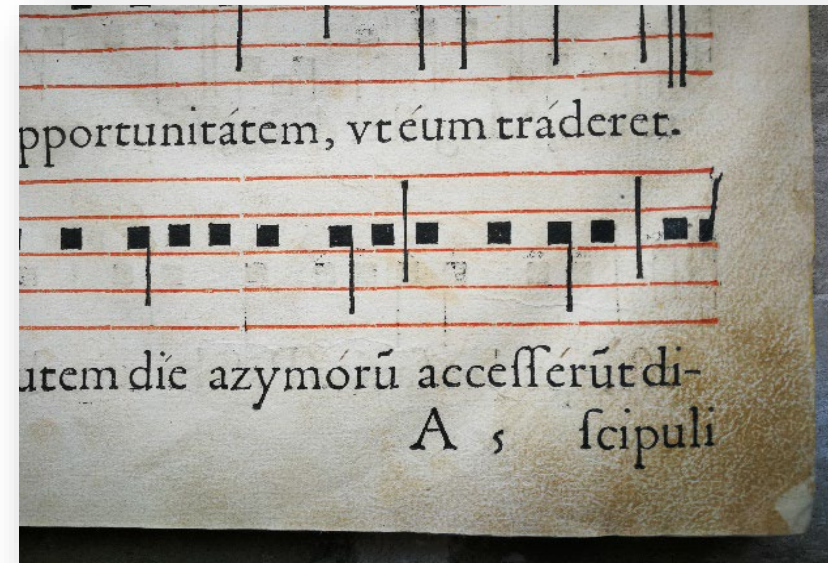 pportunitátem, vt éum tráderet.
utem díe azymórũ accèſſérũt di-
A 5 ſcipuli